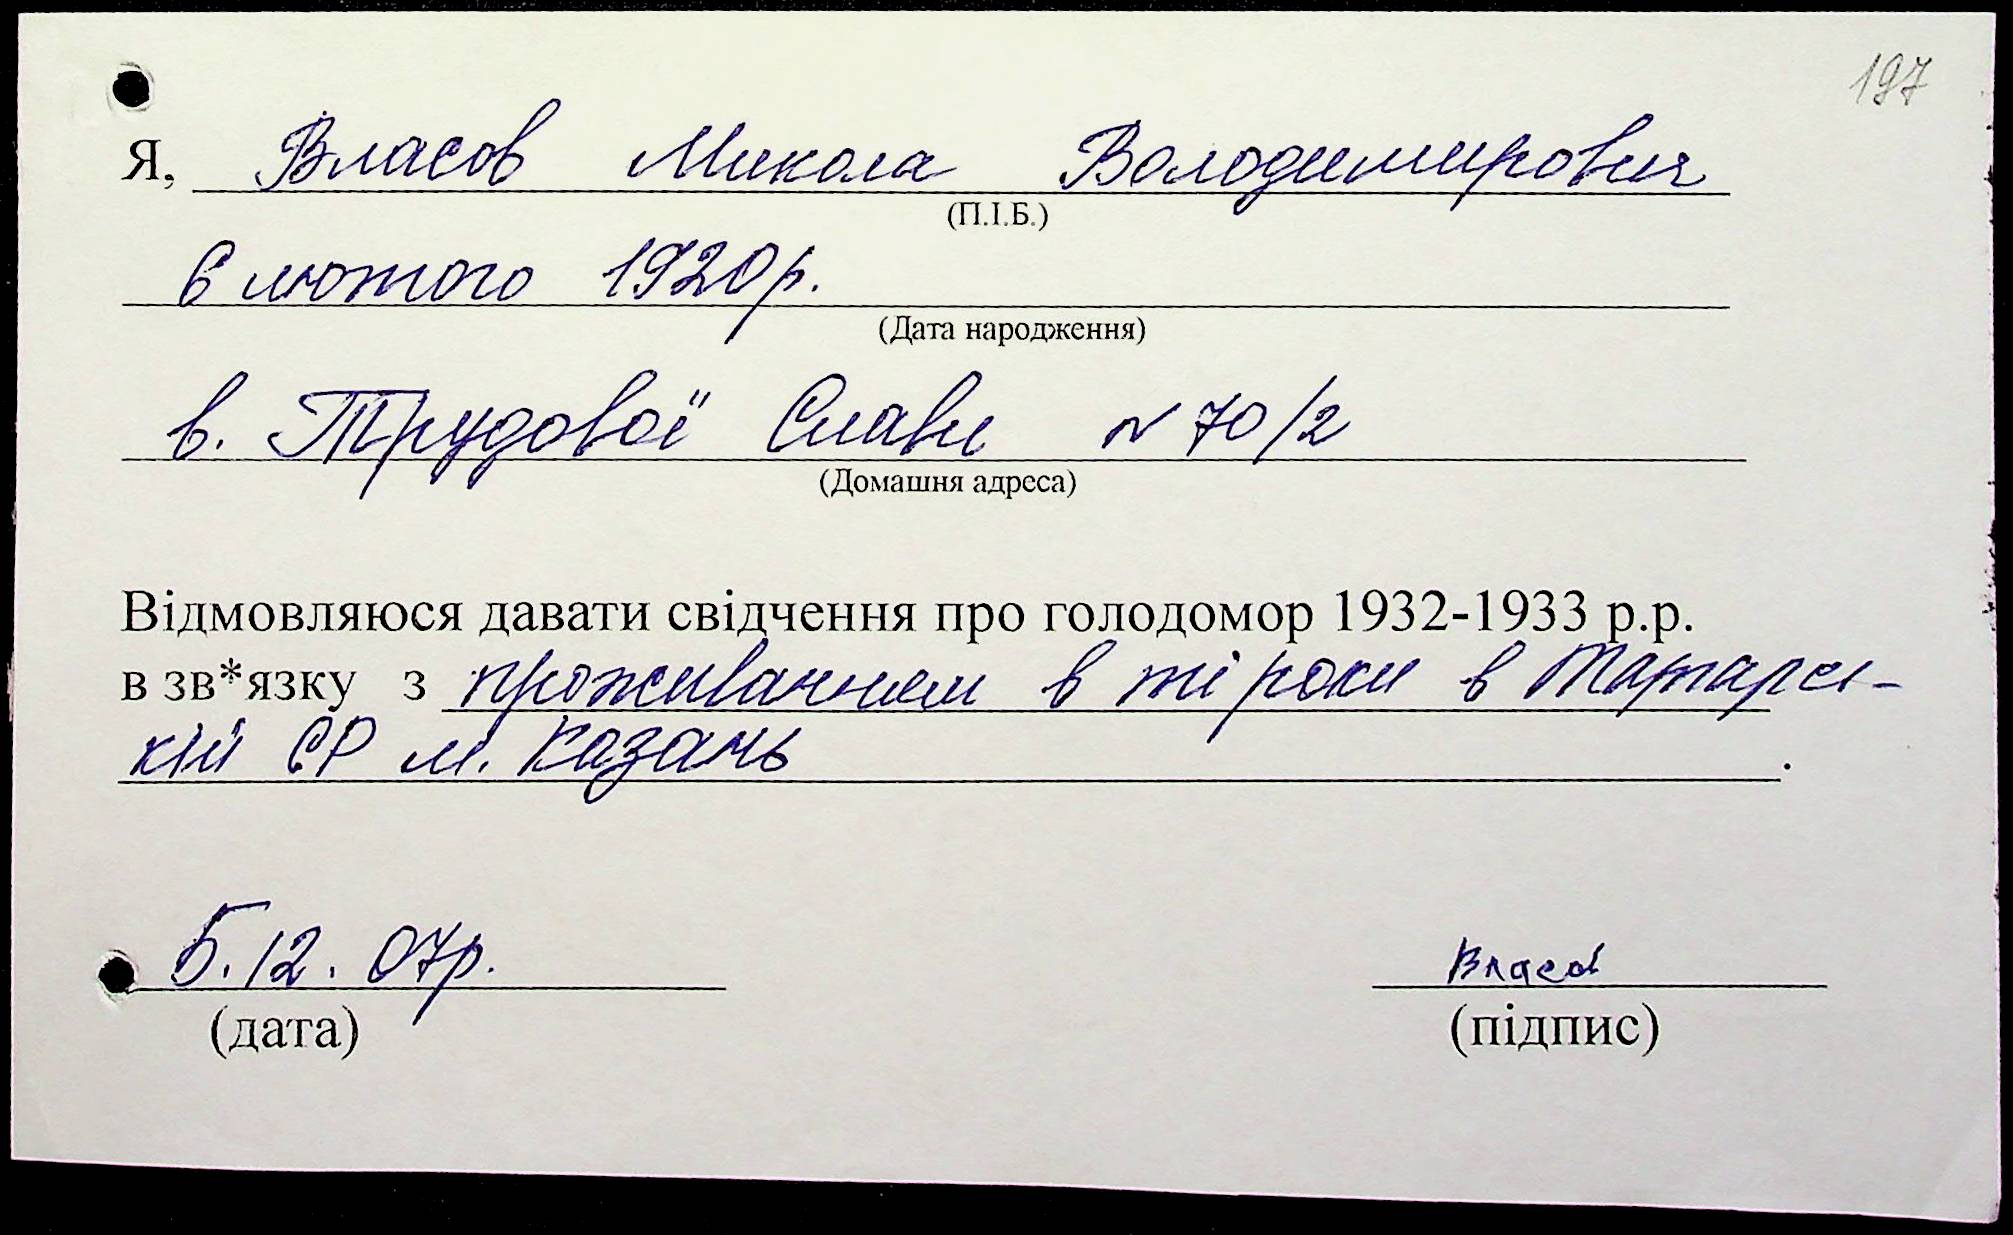 197
Я, Власов Микола Володимирович
(П.І.Б.)
6 лютого 1920р.
(Дата народження)
в. Трудової Слави № 70/2
(Домашня адреса)
Відмовляюся давати свідчення про голодомор 1932-1933 р.р.
в зв*язку з проживанням в ті роки в Татарсь-
кій СР м. Казань.
5.12.07р. Власов
(дата) (підпис)